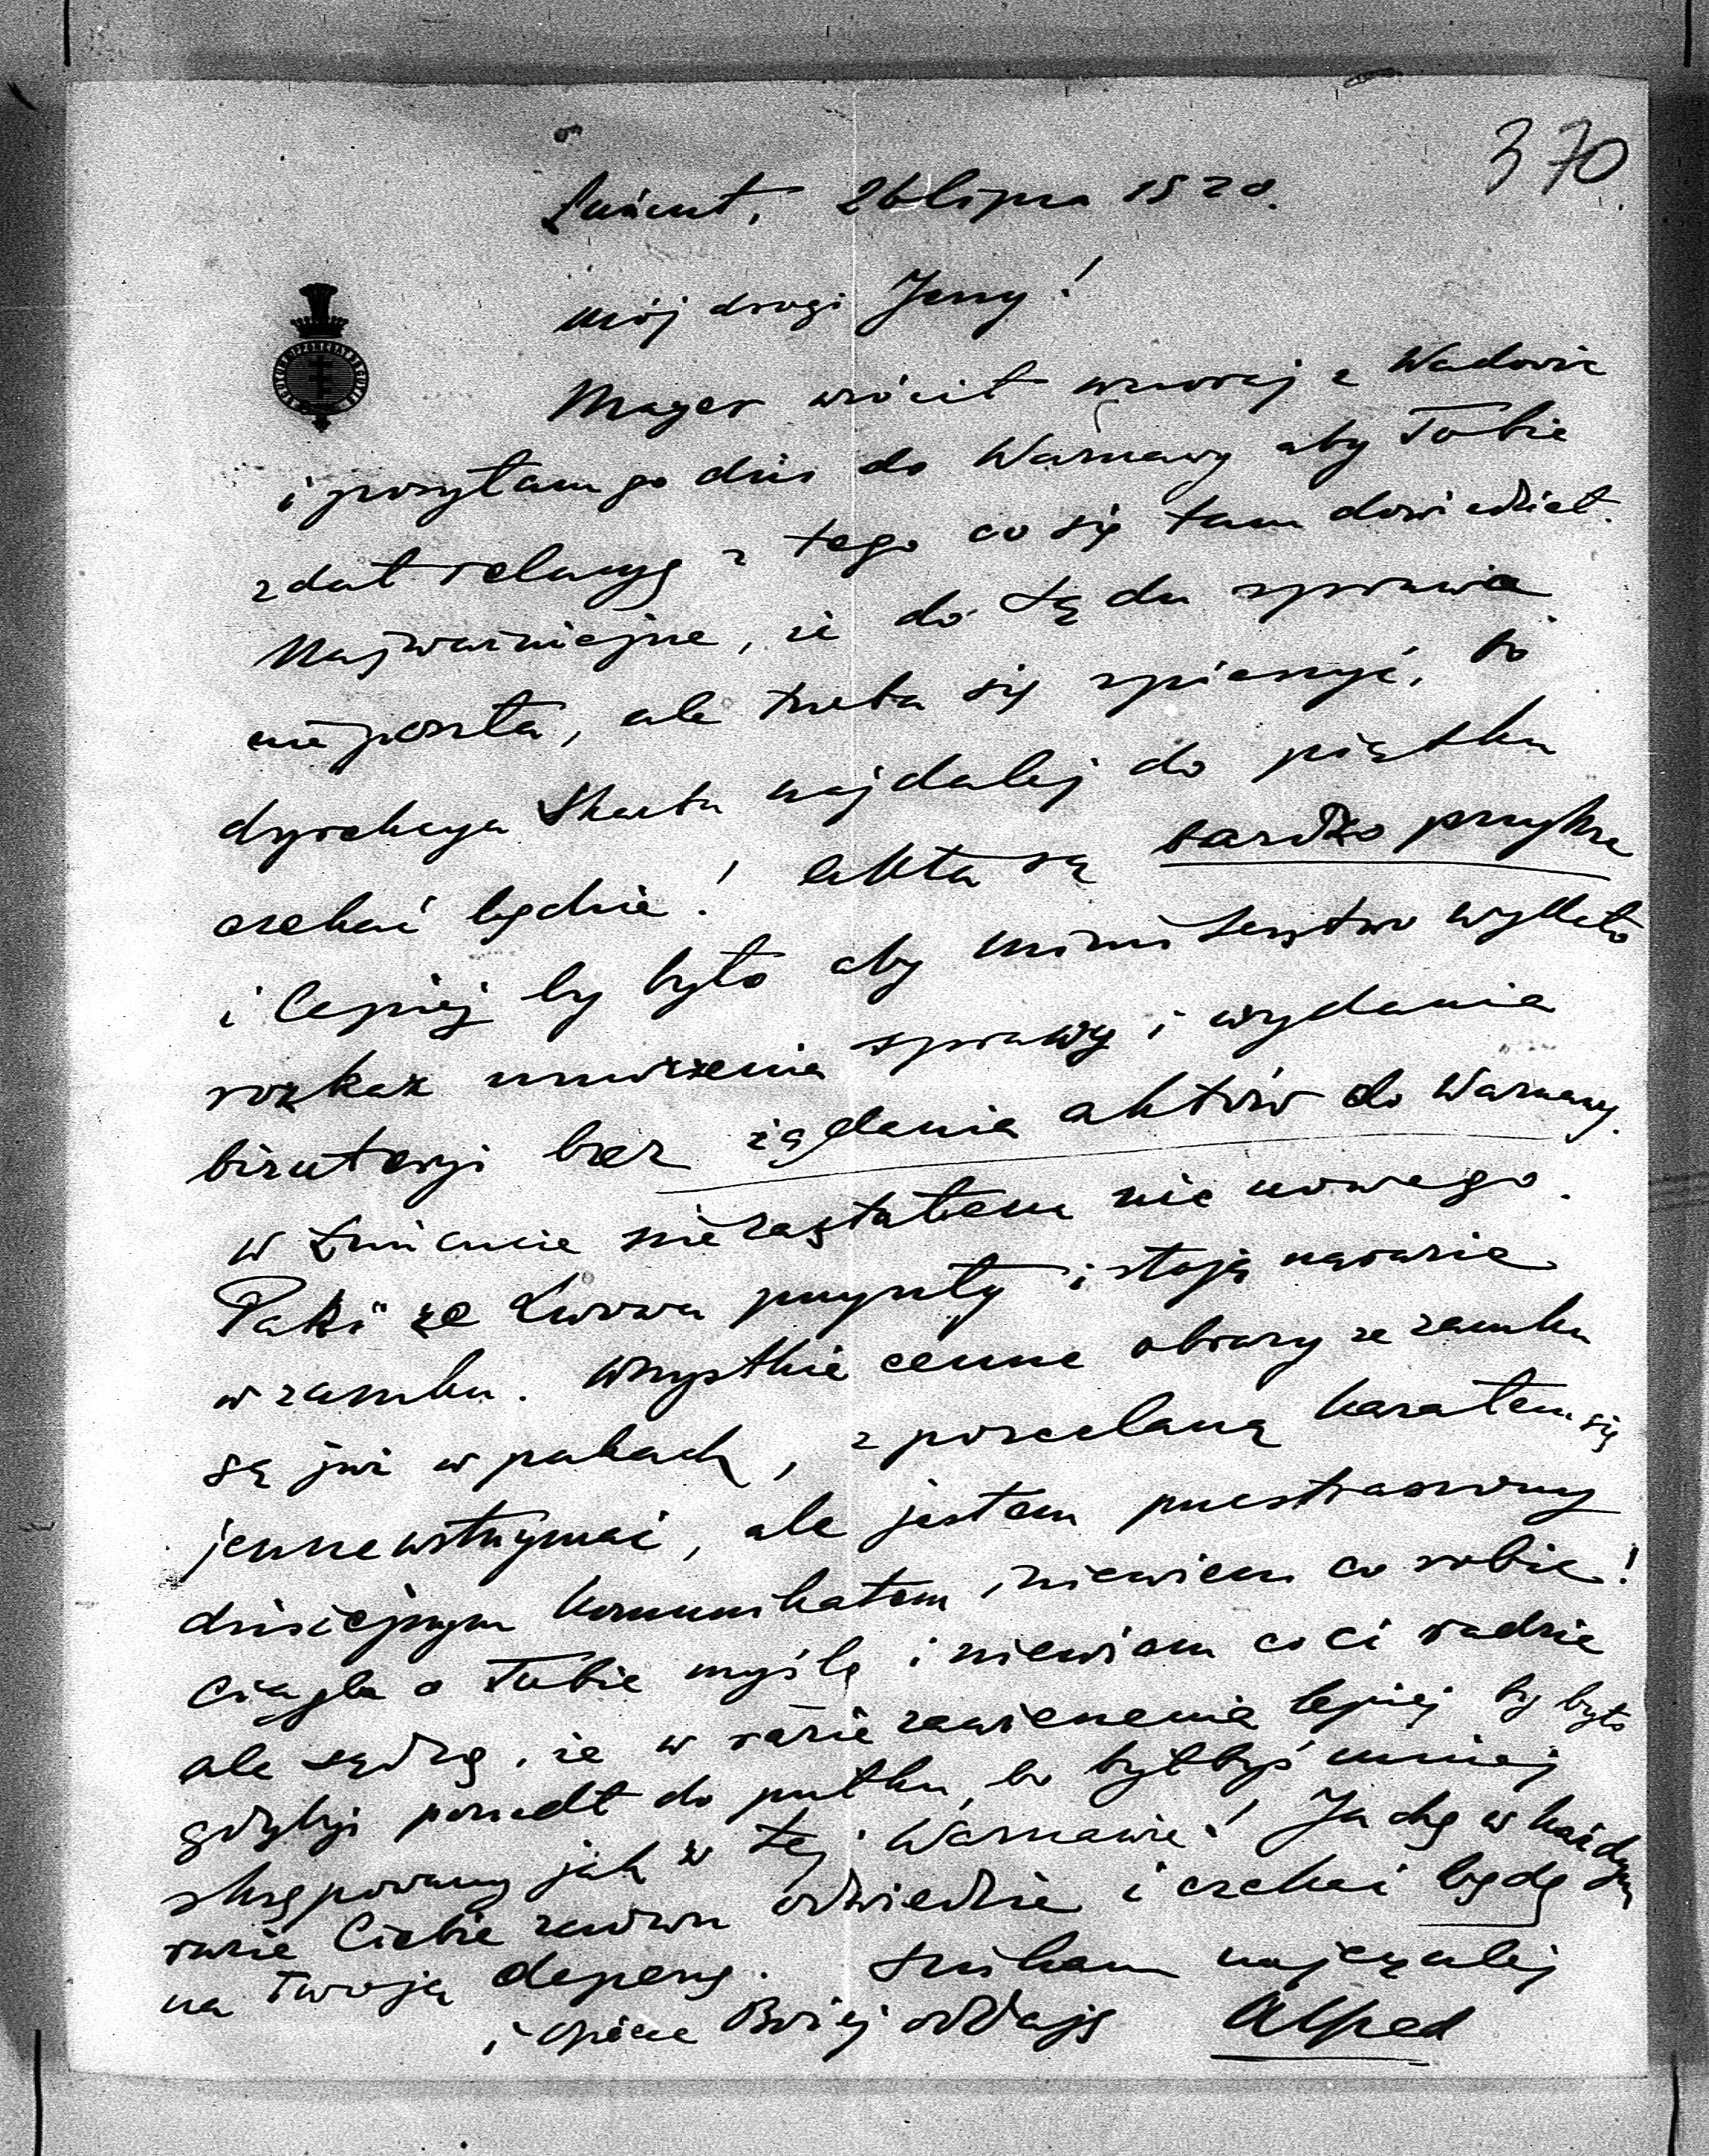 370.
Łańcut, 26 lipca 1920.
Mój drogi Jerzy!
Mager wrócił wczoraj z Wadowic
i posyłam go dziś do Warszawy aby Tobie
zdał relacyę z tego co się tam dowiedział.
Najważniejsze, że do sądu sprawa
nie poszła, ale trzeba się spieszyć, bo
dyrekcya Skarbu najdalej do piątku
czekać będzie! akta są bardzo przykre
i lepiej by było aby ministerstwo wydało
rozkaz umorzenia sprawy i wydania
bizuteryi bez żądania aktów do Warszawy.
w Łańcucie nie zastałem nic nowego.
Paki ze Lwowa przyszły i stoją narazie
w zamku. Wszystkie cenne obrazy ze zamku
są już w pakach, z porcelaną kazałem się
jeszcze wstrzymać, ale jestem przestraszony
dzisiejszym komunikatem i niewiem co robić!
Ciągle o Tobie myślę i niewiem co ci radzić
ale sądzę, że w razie zawieszenia lepiej by było
gdybyś poszedł do pułku, bo byłbyś mniej
skrępowany jak w tej Warszawie! Ja chę w każdym
razie Ciebie znowu odwiedzić i czekać będę
na Twoją depeszę. Sciskam najczulej
i opiece Bożej oddaję Alfred